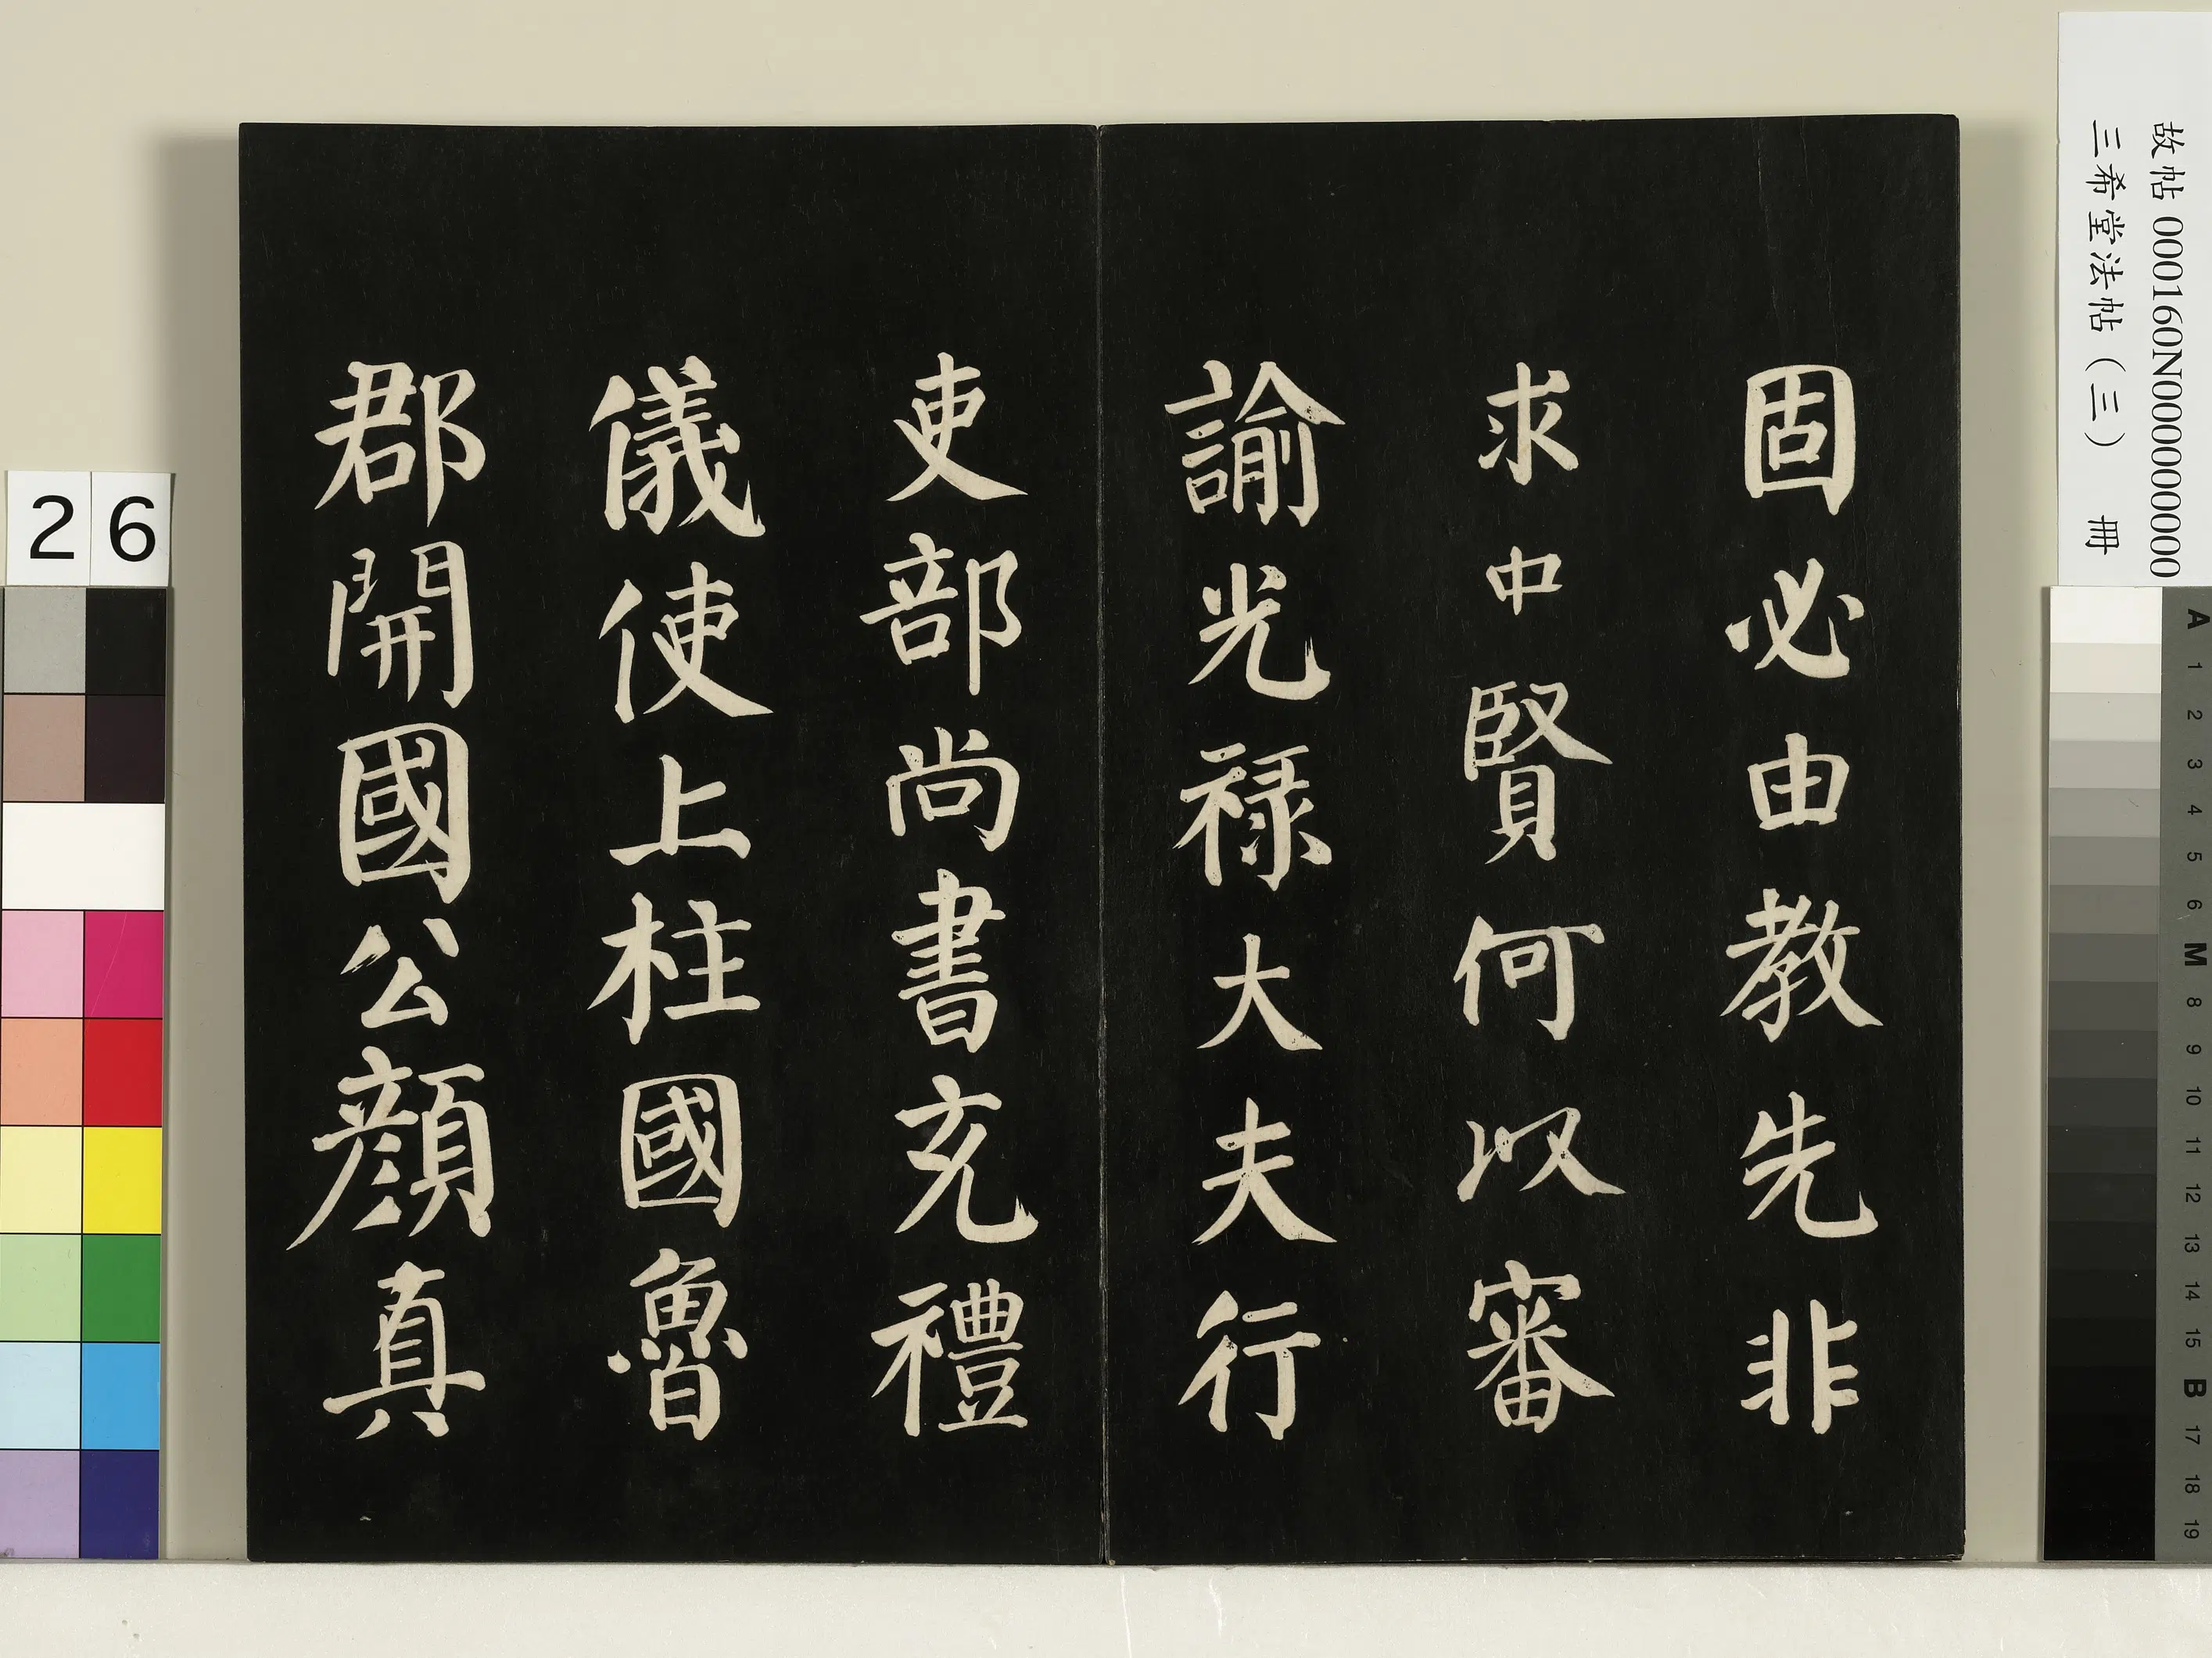 固必由教先非
求中賢何以審
諭光祿大夫行
吏部尚書充禮
儀使上柱國魯
郡開國公顏真
故帖 000160N000000000
三希堂法帖（三） 冊
26
A 1 2 3 4 5 6 M 8 9 10 11 12 13 14 15 B 17 18 19